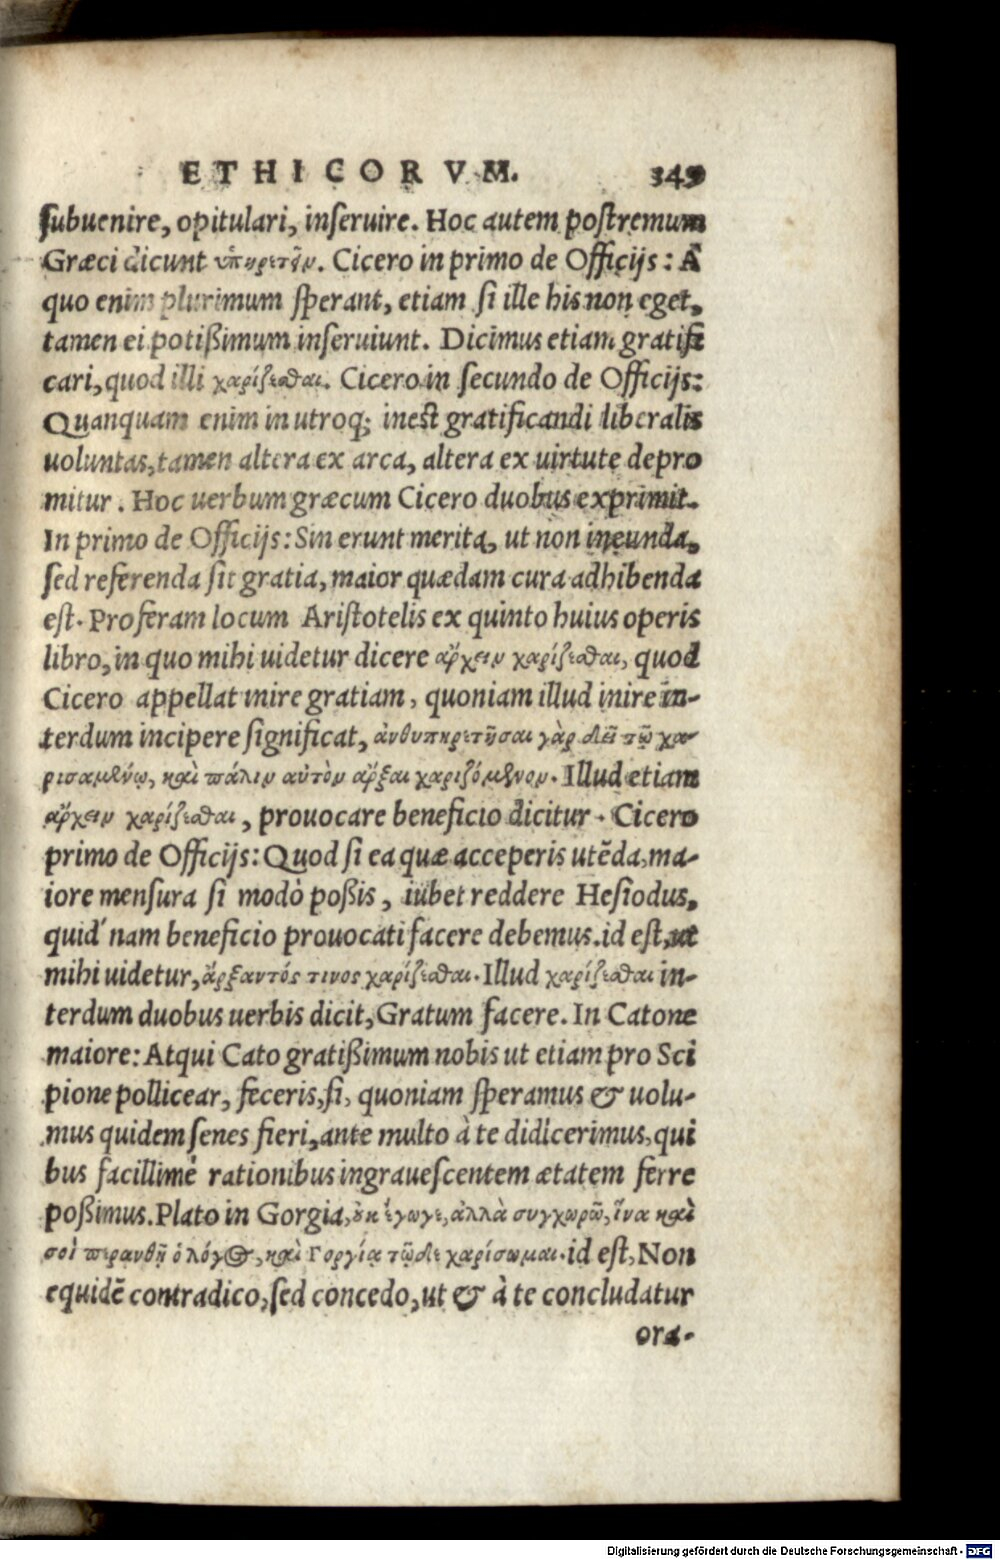 ETHICORVM. 349
ſubuenire, opitulari, inſeruire. Hoc autem poſtremum
Græci dicunt ὑπηρετεῖν. Cicero in primo de Officijs: A
quo enim plurimum ſperant, etiam ſi ille his non eget,
tamen ei potißimum inſeruiunt. Dicimus etiam gratifi
cari, quod illi χαρίζεσθαι. Cicero in ſecundo de Officijs:
Quanquam enim in utroq; ineſt gratificandi liberalis
uoluntas, tamen altera ex arca, altera ex uirtute depro
mitur. Hoc uerbum græcum Cicero duobus exprimit.
In primo de Officijs: Sin erunt merita, ut non ineunda,
ſed referenda ſit gratia, maior quædam cura adhibenda
eſt. Proferam locum Ariſtotelis ex quinto huius operis
libro, in quo mihi uidetur dicere ἄρχειν χαρίζεσθαι, quod
Cicero appellat inire gratiam, quoniam illud inire in-
terdum incipere ſignificat, ἀνθυπηρετῆσαι γὰρ δεῖ τῷ χα-
ρισαμένῳ, καὶ πάλιν αὐτὸν ἄρξαι χαριζόμενον. Illud etiam
ἄρχειν χαρίζεσθαι, prouocare beneficio dicitur. Cicero
primo de Officijs: Quod ſi ea quæ acceperis utēda, ma-
iore menſura ſi modò poßis, iubet reddere Heſiodus,
quid'nam beneficio prouocati facere debemus. id eſt, ut
mihi uidetur, ἄρξαντός τινος χαρίζεσθαι. Illud χαρίζεσθαι in-
terdum duobus uerbis dicit, Gratum facere. In Catone
maiore: Atqui Cato gratißimum nobis ut etiam pro Sci
pione pollicear, feceris, ſi, quoniam ſperamus & uolu-
mus quidem ſenes fieri, ante multo à te didicerimus, qui
bus facillimè rationibus ingraueſcentem ætatem ferre
poßimus. Plato in Gorgia, οὐκ ἔγωγε, ἀλλὰ συγχωρῶ, ἵνα καὶ
σοὶ περανθῇ ὁ λόγος, καὶ Γοργίᾳ τῷδε χαρίσωμαι. id eſt, Non
equidē contradico, ſed concedo, ut & à te concludatur
ora-
Digitalisierung gefördert durch die Deutsche Forschungsgemeinschaft - DFG